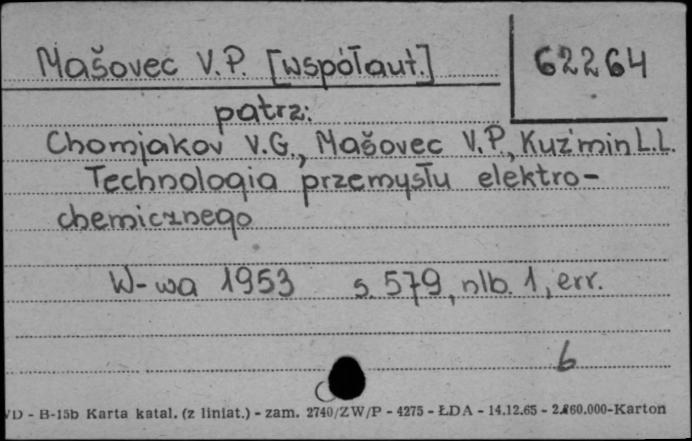 Mašovec V.P. [współaut.] 62264
patrz:
Chomjakov V.G., Mašovec V.P., Kuz'min L.L.
Technologia przemysłu elektro-
chemicznego
W-wa 1953 s. 579, nlb. 1, err.
b
VD - B-15b Karta katal. (z liniat.) - zam. 2740/ZW/P - 4275 - ŁDA - 14.12.65 - 2.260.000-Karton